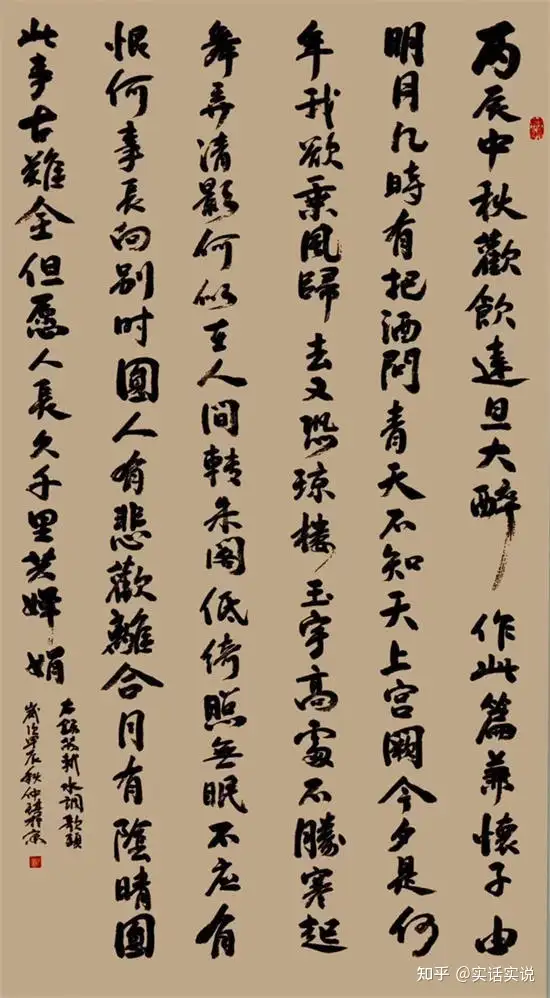 丙辰中秋歡飲達旦大醉 作此篇兼懷子由
明月几時有把酒問青天不知天上宫闕今夕是何
年我欲乘風歸去又恐琼楼玉宇高處不勝寒起
舞弄清影何似在人間轉朱阁低绮照無眠不应有
恨何事長向别时圓人有悲歡離合月有陰晴圓
此事古難全但愿人長久千里共婵娟
右録苏軾水调歌頭
歲次甲辰秋仲
知乎 @实话实说